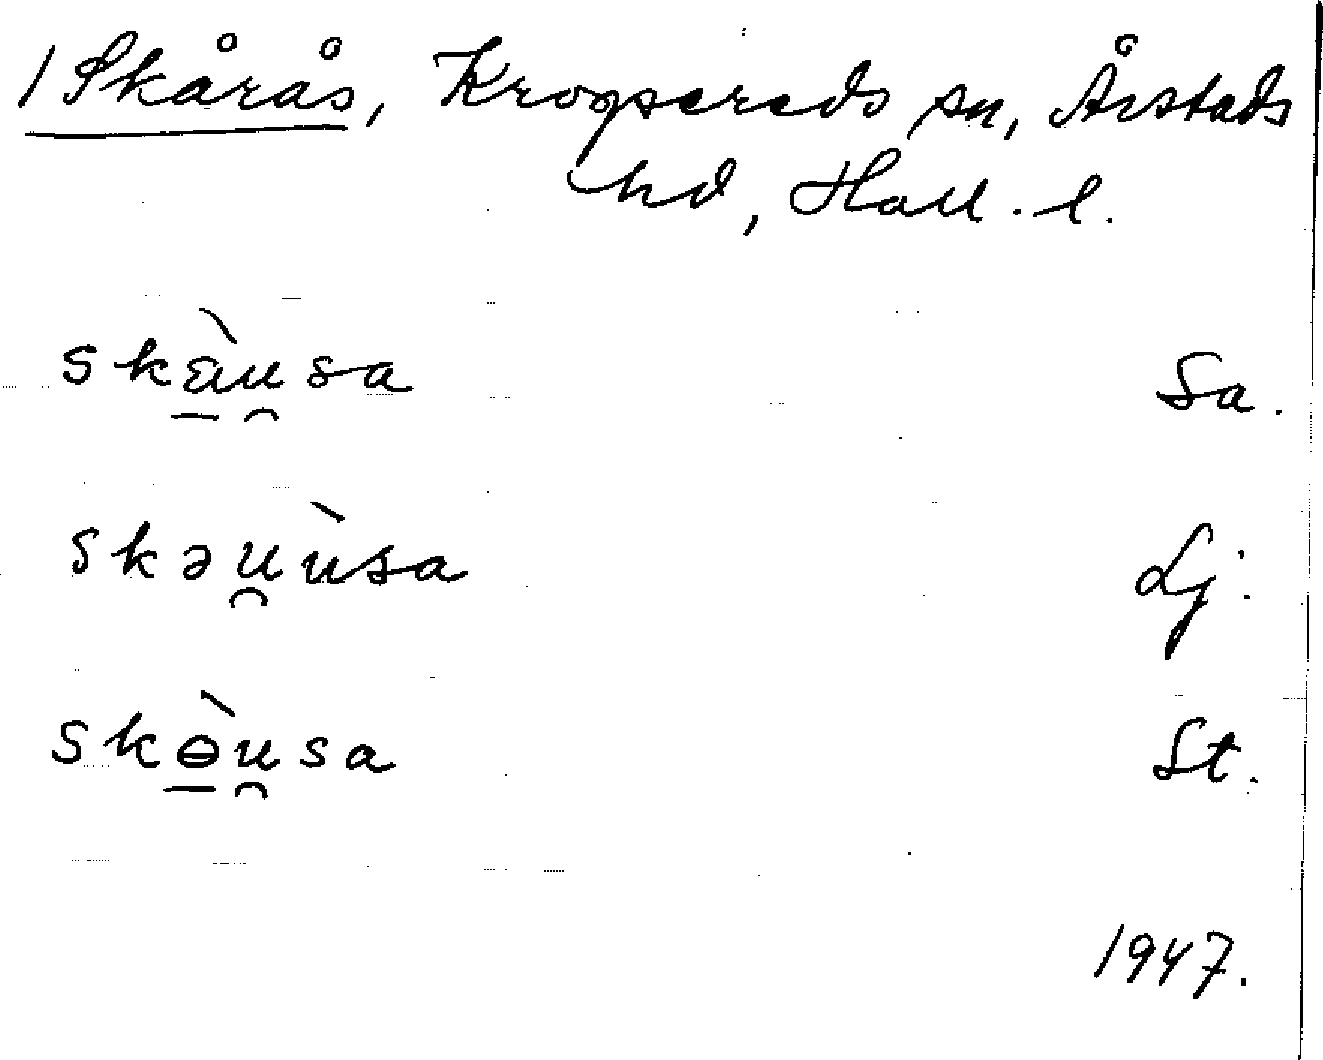 1 Skårås, Krogsereds sn, Årstads
hd, Hall. l.
skàu̯sa Sa.
skəu̯ùsa Lj.
skɵ̀u̯sa St.
1947.